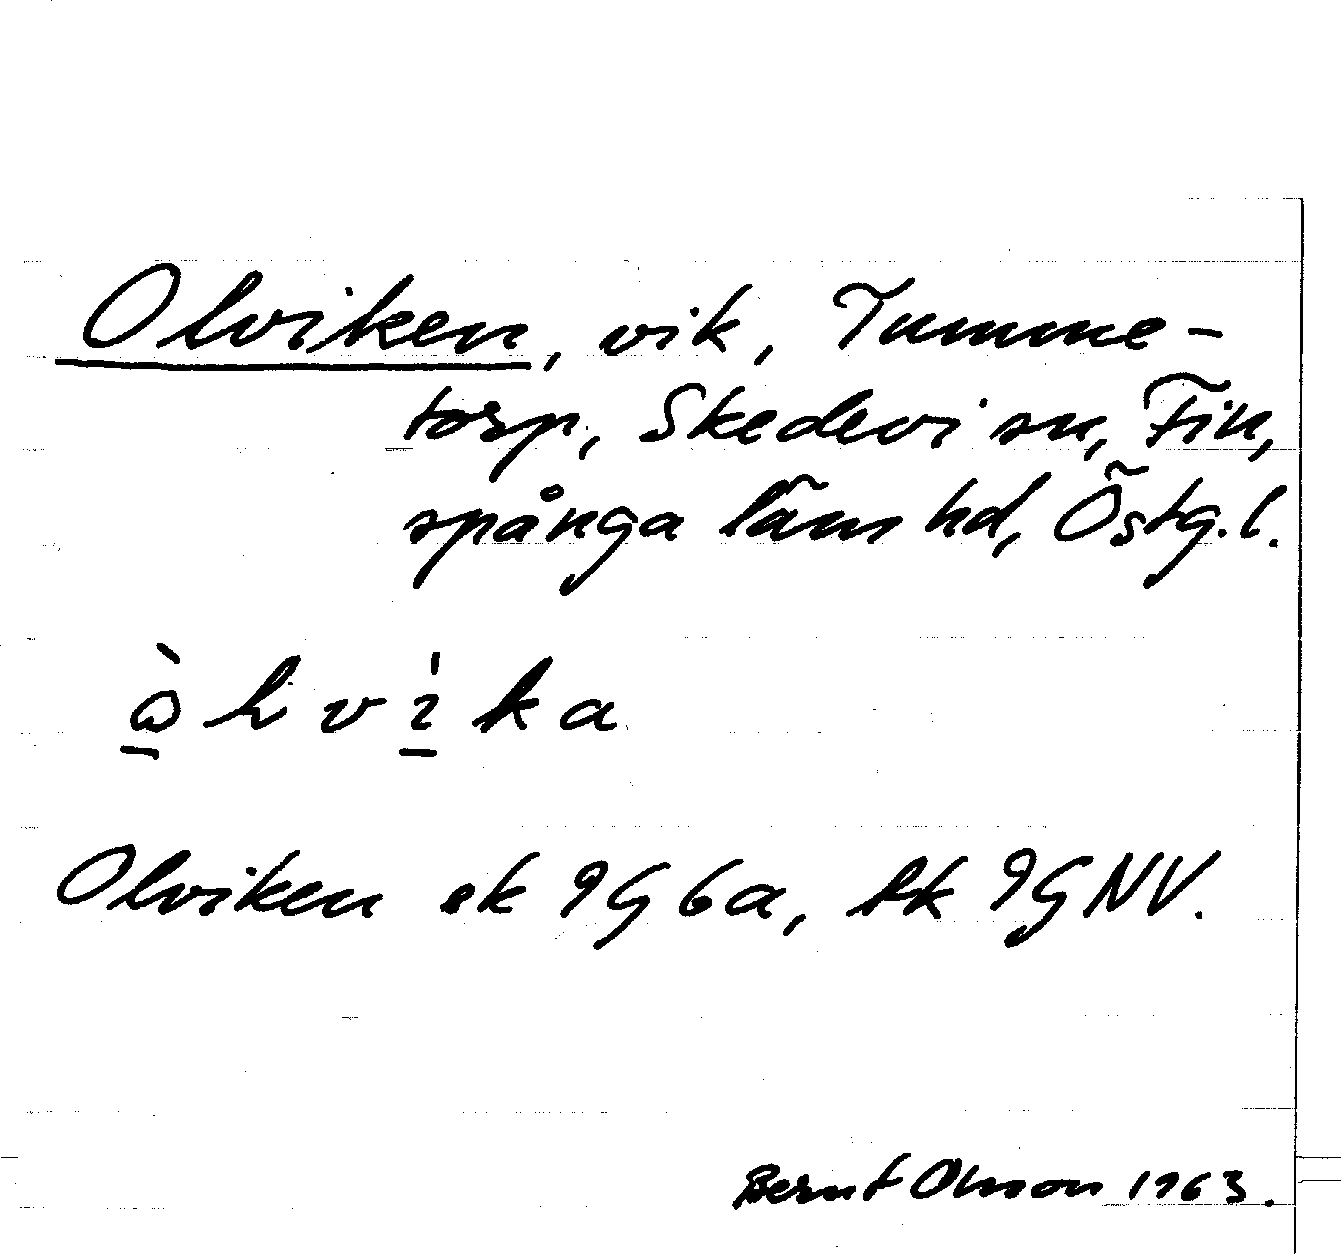 Olviken, vik, Tumme-
torp, Skedevi sn, Fin,
spånga läns hd, Östg. l.
Olviken ek 9G 6a, tk 9G NV.
Bernt Olsson 1963.